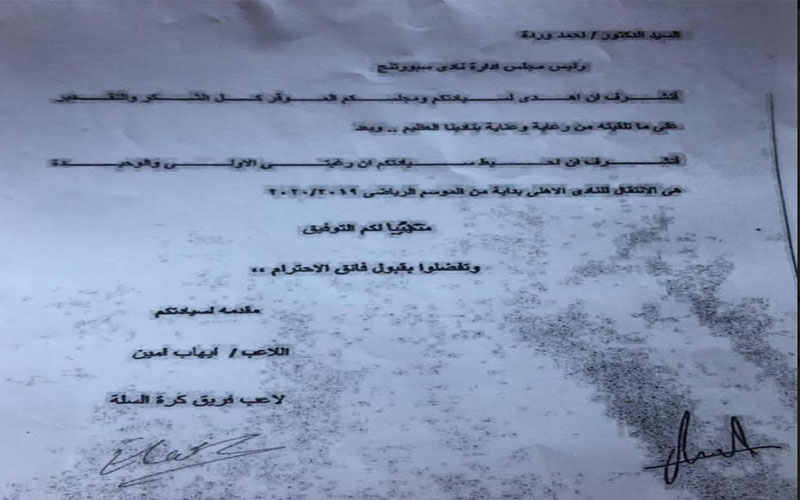 السيد الدكتور / احمد وردة
رئيس مجلس ادارة نادى سبورتنج
أتشرف ان اهدى لسيادتكم ومجلسكم الموقر كل الشكر والتقدير
على ما تلقيته من رعاية وعناية بنادينا العظيم .. وبعد
أتشرف ان احيط سيادتكم ان رغبتى الاولى والوحيدة
هى الانتقال للنادى الاهلى بداية من الموسم الرياضى ٢٠٢٠/٢٠١٩
متمنيا لكم التوفيق
وتفضلوا بقبول فائق الاحترام ،،
مقدمه لسيادتكم
اللاعب / ايهاب امين
لاعب فريق كرة السلة